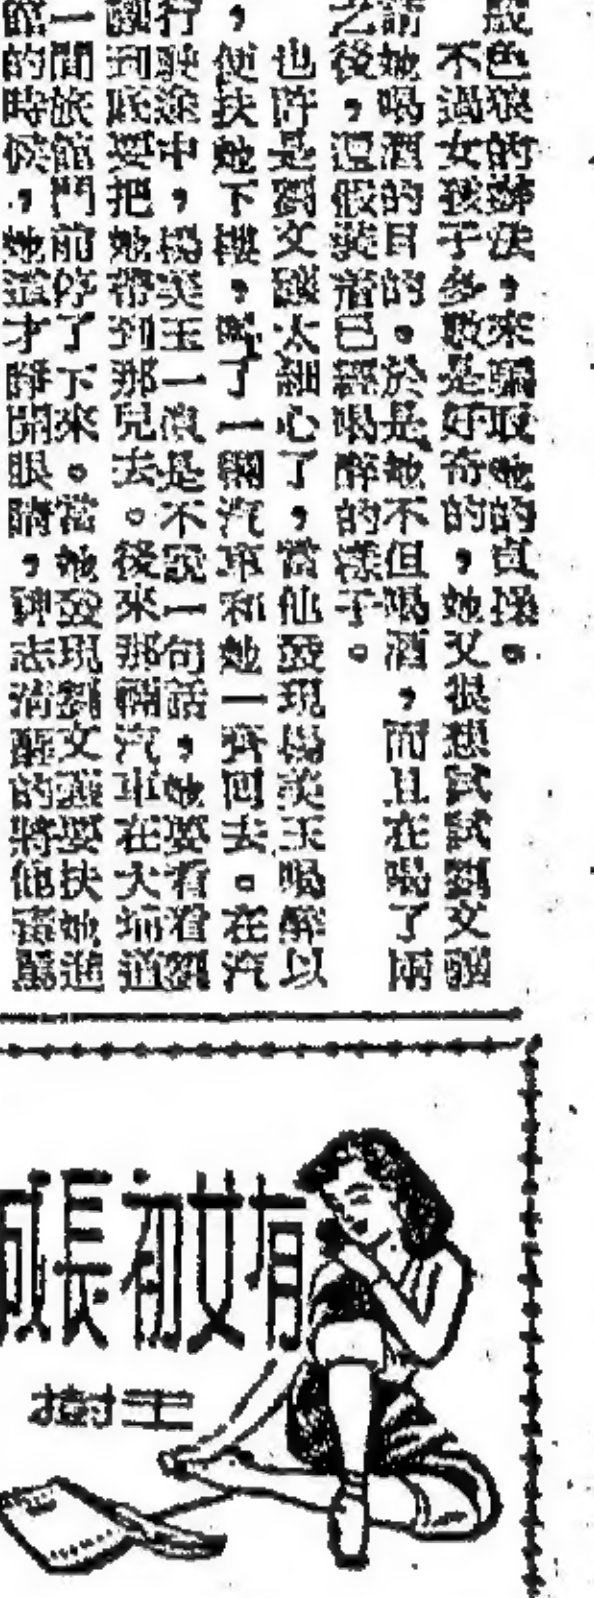 成色狼的辦法，來騙取她的貞操。
不過女孩子多數是好奇的，她又很想試試劉文
請她喝酒的目的。於是她不但喝酒，而且在喝了兩
之後，還假裝着已經喝醉的樣子。
也許是劉文太細心了，當他發現楊英玉喝醉以
，便扶她下樓，喊了一輛汽車和她一齊回去。在汽
行駛途中，楊英玉一直是不說一句話，她要看看劉
到底要把她帶到那兒去。後來那輛汽車在大埔道
一間旅館門前停了下來。當她發現劉文要扶她進
館的時候，她這才睜開眼睛，神志清醒的將他
有女初長成
王樹